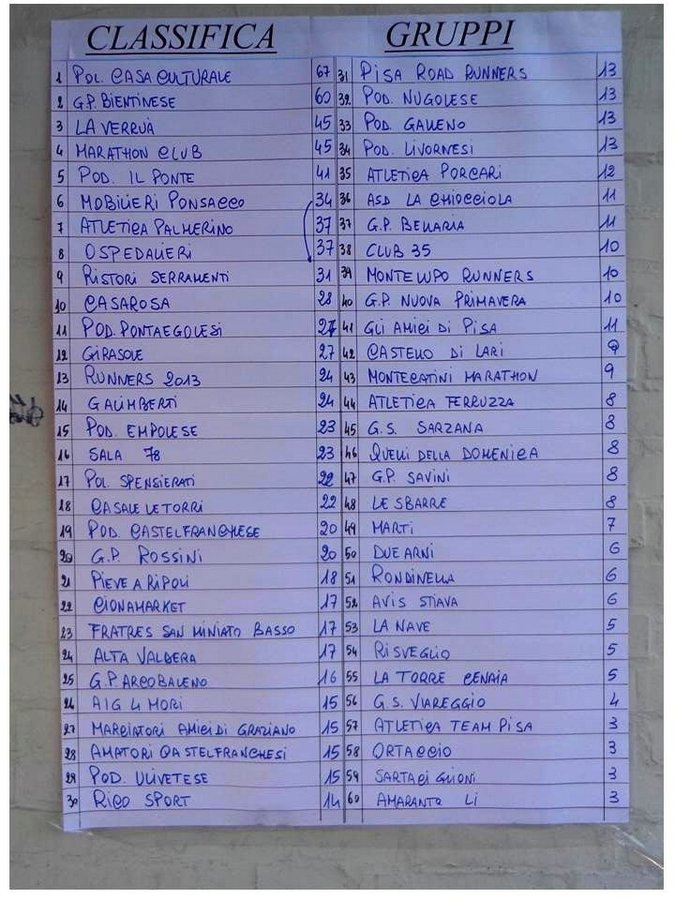 CLASSIFICA GRUPPI
1 POL. CASA CULTURALE 67
2 G.P. BIENTINESE 60
3 LA VERRUÀ 45
4 MARATHON CLUB 45
5 POD. IL PONTE 41
6 MOBILIERI PONSACCO 34
7 ATLETICA PALMERINO 37
8 OSPEDALIERI 37
9 RISTORI SERRAMENTI 31
10 CASAROSA 28
11 POD. PONTAEGOLESI 27
12 GIRASOLE 27
13 RUNNERS 2013 24
14 GALIMBERTI 24
15 POD. EMPOLESE 23
16 SALA 78 23
17 POL. SPENSIERATI 22
18 CASALE LE TORRI 22
19 POD. CASTELFRANCHESE 20
20 G.P. ROSSINI 20
21 PIEVE A RIPOLI 18
22 CIONAMARKET 17
23 FRATRES SAN MINIATO BASSO 17
24 ALTA VALDERA 17
25 G.P. ARCOBALENO 16
26 AIG 4 MORI 15
27 MARCIATORI AMICI DI GRAZIANO 15
28 AMATORI CASTELFRANCHESI 15
29 POD. ULIVETESE 15
30 RICO SPORT 14
31 PISA ROAD RUNNERS 13
32 POD. NUGOLESE 13
33 POD. GALLENO 13
34 POD. LIVORNESI 13
35 ATLETICA PORCARI 12
36 ASD LA CHIOCCIOLA 11
37 G.P. BELLARIA 11
38 CLUB 35 10
39 MONTELUPO RUNNERS 10
40 G.P. NUOVA PRIMAVERA 10
41 GLI AMICI DI PISA 11
42 CASTELLO DI LARI 9
43 MONTECATINI MARATHON 9
44 ATLETICA FERRUZZA 8
45 G.S. SARZANA 8
46 QUELLI DELLA DOMENICA 8
47 G.P. SAVINI 8
48 LE SBARRE 8
49 MARTI 7
50 DUE ARNI 6
51 RONDINELLA 6
52 AVIS STIAVA 6
53 LA NAVE 5
54 RISVEGLIO 5
55 LA TORRE CENAIA 5
56 G.S. VIAREGGIO 4
57 ATLETICA TEAM PISA 3
58 ORTACCIO 3
59 3
60 AMARANTO LI 3